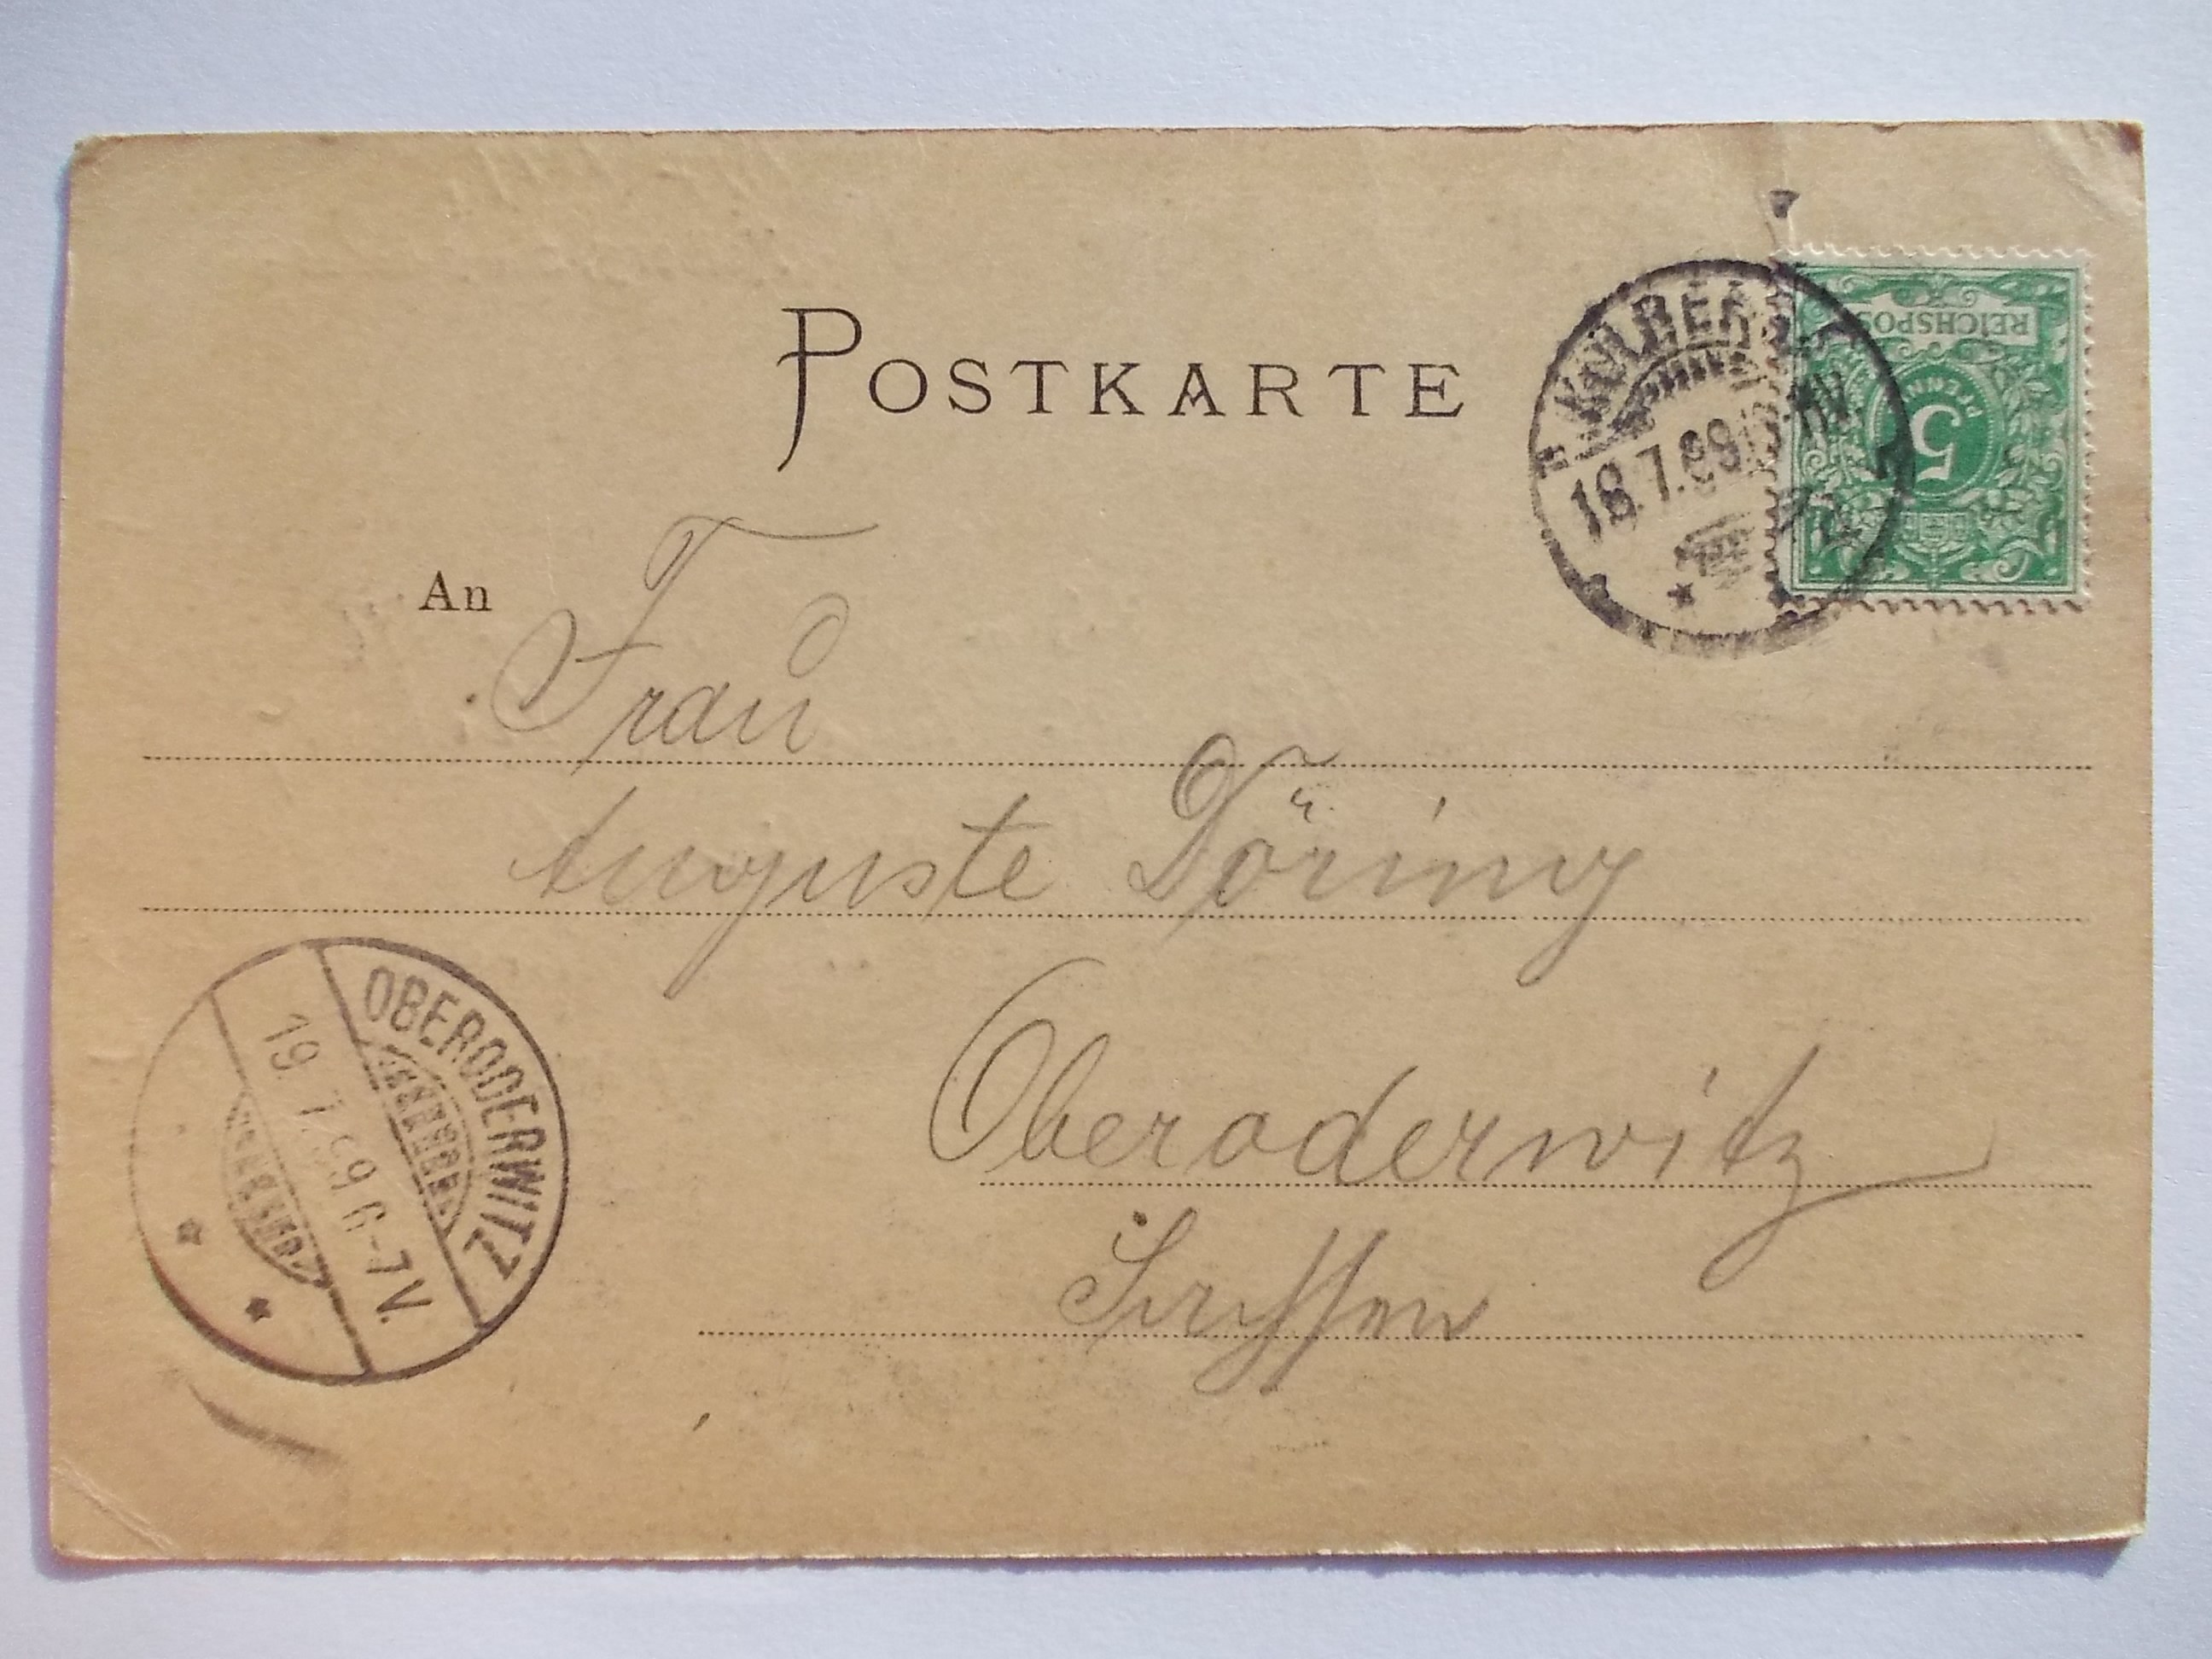 POSTKARTE
REICHSPOST
5
PFENNIG
18.7.99
An
Frau
Auguste Döring
Oberoderwitz
Sachsen
OBERODERWITZ
19.7.99 6-7V.